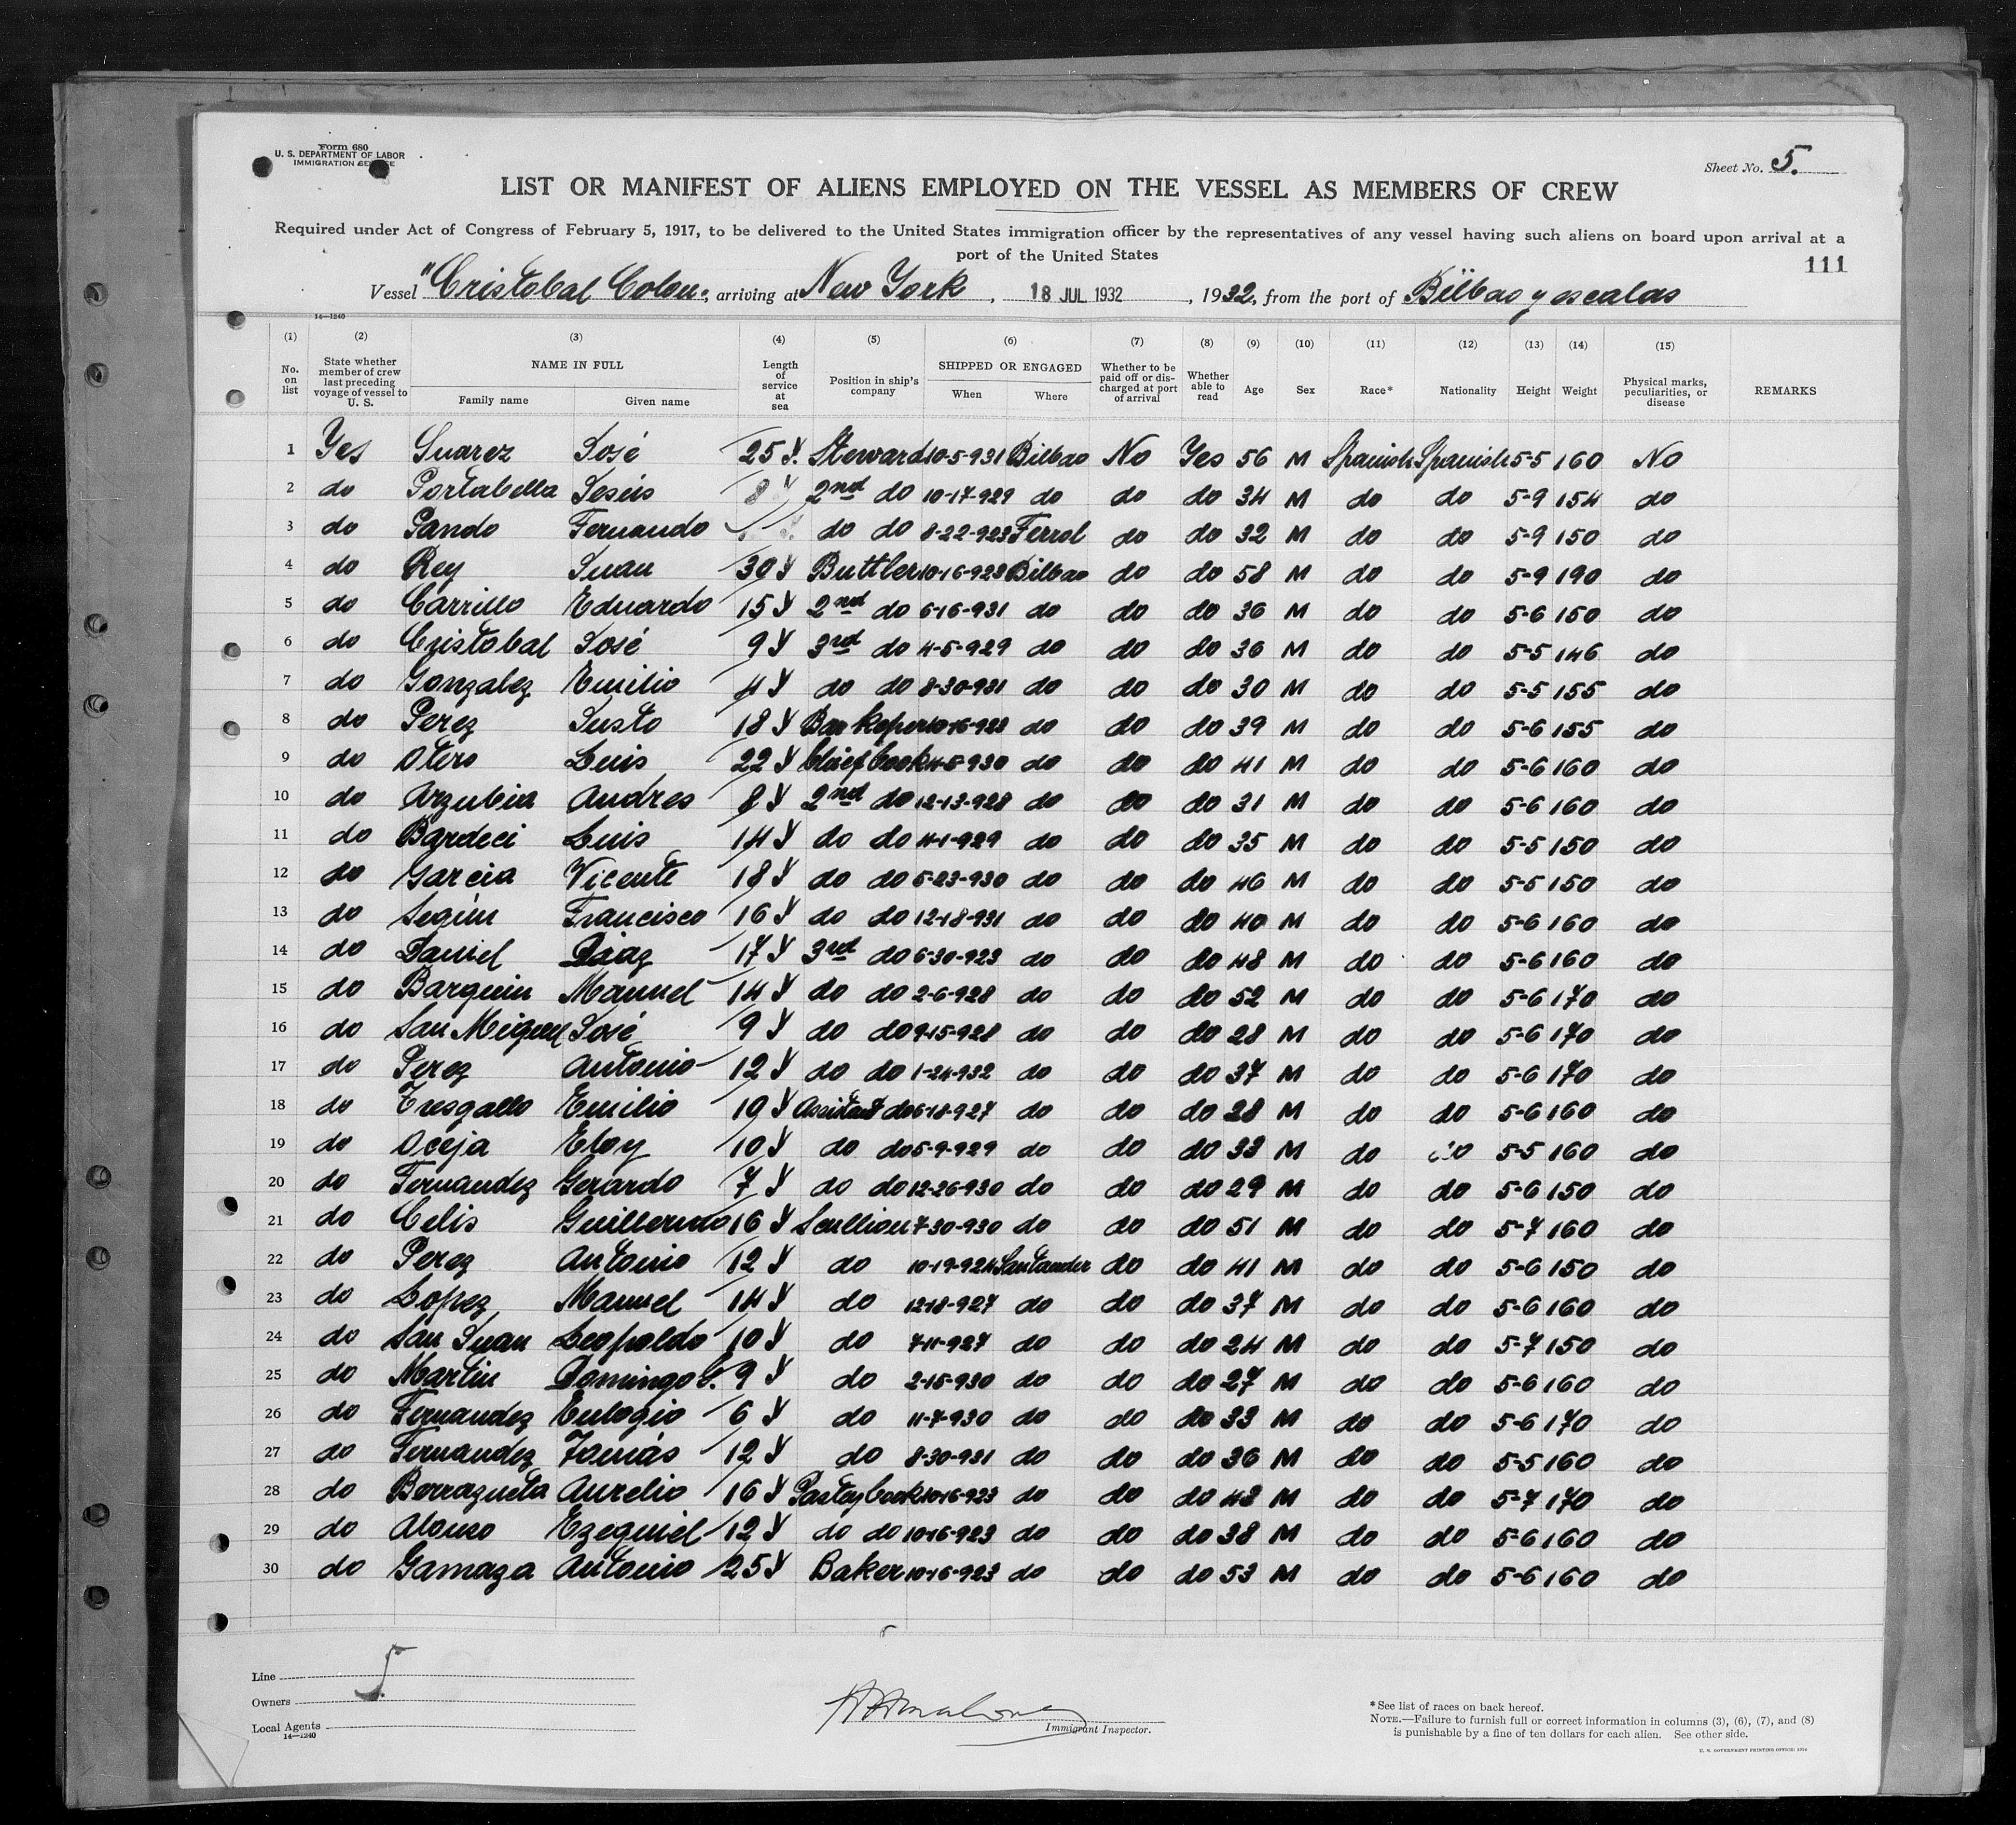 Form 680
U. S. DEPARTMENT OF LABOR
IMMIGRATION SERVICE
Sheet No. 5.
LIST OR MANIFEST OF ALIENS EMPLOYED ON THE VESSEL AS MEMBERS OF CREW
Required under Act of Congress of February 5, 1917, to be delivered to the United States immigration officer by the representatives of any vessel having such aliens on board upon arrival at a
port of the United States
111
Vessel "Cristobal Colon", arriving at New York, 18 JUL 1932, 1932, from the port of Bilbao y escalas
14—1240
(1) (2) (3) (4) (5) (6) (7) (8) (9) (10) (11) (12) (13) (14) (15)
No. on list State whether member of crew last preceding voyage of vessel to U. S. NAME IN FULL Family name Given name Length of service at sea Position in ship's company SHIPPED OR ENGAGED When Where Whether to be paid off or discharged at port of arrival Whether able to read Age Sex Race* Nationality Height Weight Physical marks, peculiarities, or disease REMARKS
1 Yes Suarez José 25 Y. Steward 10-5-931 Bilbao No Yes 56 M Spanish Spanish 5-5 160 No
2 do Portabella Jesús 8 Y 2nd do 10-17-929 do do do 34 M do do 5-9 154 do
3 do Pando Fernando do do 8-22-923 Ferrol do do 32 M do do 5-9 150 do
4 do Rey Juan 30 Y Buttler 10-16-923 Bilbao do do 58 M do do 5-9 190 do
5 do Carrillo Eduardo 15 Y 2nd do 6-16-931 do do do 36 M do do 5-6 150 do
6 do Cristobal José 9 Y 3rd do 4-5-929 do do do 36 M do do 5-5 146 do
7 do Gonzalez Emilio 4 Y do do 8-30-931 do do do 30 M do do 5-5 155 do
8 do Perez Justo 18 Y Barkeper 10-16-923 do do do 39 M do do 5-6 155 do
9 do Otero Luis 22 Y Chief Cook 4-5-930 do do do 41 M do do 5-6 160 do
10 do Arzubia Andres 8 Y 2nd do 12-13-928 do do do 31 M do do 5-6 160 do
11 do Bardeci Luis 14 Y do do 4-1-929 do do do 35 M do do 5-5 150 do
12 do Garcia Vicente 18 Y do do 5-23-930 do do do 46 M do do 5-5 150 do
13 do Segúu Francisco 16 Y do do 12-18-931 do do do 40 M do do 5-6 160 do
14 do Daniel Diaz 17 Y 3rd do 6-30-923 do do do 48 M do do 5-6 160 do
15 do Barquin Manuel 14 Y do do 2-6-928 do do do 52 M do do 5-6 170 do
16 do San Miguel José 9 Y do do 9-15-928 do do do 28 M do do 5-6 170 do
17 do Perez Antonio 12 Y do do 1-24-932 do do do 37 M do do 5-6 170 do
18 do Tresgallo Emilio 10 Y Assitant do 6-18-927 do do do 28 M do do 5-6 160 do
19 do Oceja Eloy 10 Y do do 5-9-929 do do do 33 M do do 5-5 160 do
20 do Fernandez Gerardo 7 Y do do 12-26-930 do do do 29 M do do 5-6 150 do
21 do Celis Guillermo 16 Y Scullion 7-30-930 do do do 51 M do do 5-7 160 do
22 do Perez Antonio 12 Y do 10-19-924 Santander do do 41 M do do 5-6 150 do
23 do Lopez Manuel 14 Y do 12-18-927 do do do 37 M do do 5-6 160 do
24 do San Juan Leopoldo 10 Y do 7-11-927 do do do 24 M do do 5-7 150 do
25 do Martin Domingo C. 9 Y do 2-15-930 do do do 27 M do do 5-6 160 do
26 do Fernandez Eulogio 6 Y do 11-7-930 do do do 33 M do do 5-6 170 do
27 do Fernandez Tomás 12 Y do 8-30-931 do do do 36 M do do 5-5 160 do
28 do Berrazueta Aurelio 16 Y Pastey Cook 10-16-923 do do do 48 M do do 5-7 170 do
29 do Alonso Ezequiel 12 Y do do 10-16-923 do do do 38 M do do 5-6 160 do
30 do Gamaza Antonio 25 Y Baker 10-16-923 do do do 53 M do do 5-6 160 do
Line
Owners
Local Agents
14—1240
5.
Immigrant Inspector.
*See list of races on back hereof.
NOTE.—Failure to furnish full or correct information in columns (3), (6), (7), and (8)
is punishable by a fine of ten dollars for each alien. See other side.
U. S. GOVERNMENT PRINTING OFFICE: